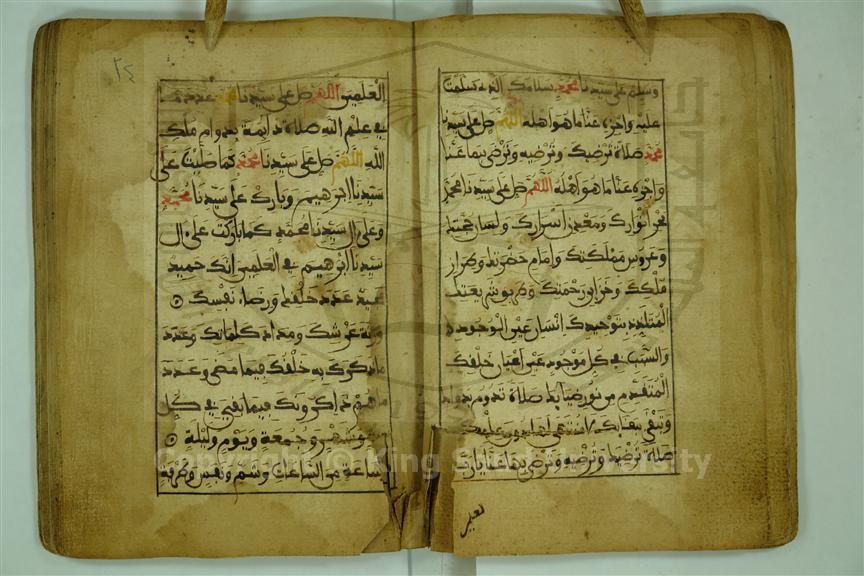 وسلم على سيدنا محمد سلامك الذي سلمت
عليه واجزه عنا ما هو اهله اللهم صل على سيدنا
محمد صلاة ترضيك وترضيه وترضى بها عنا
واجزه عنا ما هو اهله اللهم صل على سيدنا محمد
بحر انوارك ومعدن اسرارك ولسان حجتك
وعروس مملكتك وامام حضرتك وطراز
ملكك وخزاين رحمتك وطريق شريعتك
المتلذذ بتوحيدك انسان عين الوجود
والسبب في كل موجود عين اعيان خلقك
المتقدم من نور ضيايك صلاة تدوم بدوامك
وتبقى ببقايك لا منتهى لها دون علمك
صلاة ترضيك وترضيه وترضى بها عنا يا رب
لعلمين
٢٤
العلمين اللهم صل على سيدنا محمد عدد ما
في علم الله صلاة دايمة بدوام ملك
الله اللهم صل على سيدنا محمد كما صليت على
سيدنا ابرهيم وبارك على سيدنا محمد
وعلى ال سيدنا محمد كما باركت على ال
سيدنا ابرهيم في العلمين انك حميد
مجيد عدد خلقك ورضاء نفسك
وزنة عرشك ومداد كلماتك وعدد
ما ذكرك به خلقك فيما مضى وعدد
ما هم ذاكرونك فيما بقي في كل
سنة وشهر وجمعة ويوم وليلة
وساعة من الساعات وشم ونفس وطرفة
Copyright © King Saud University